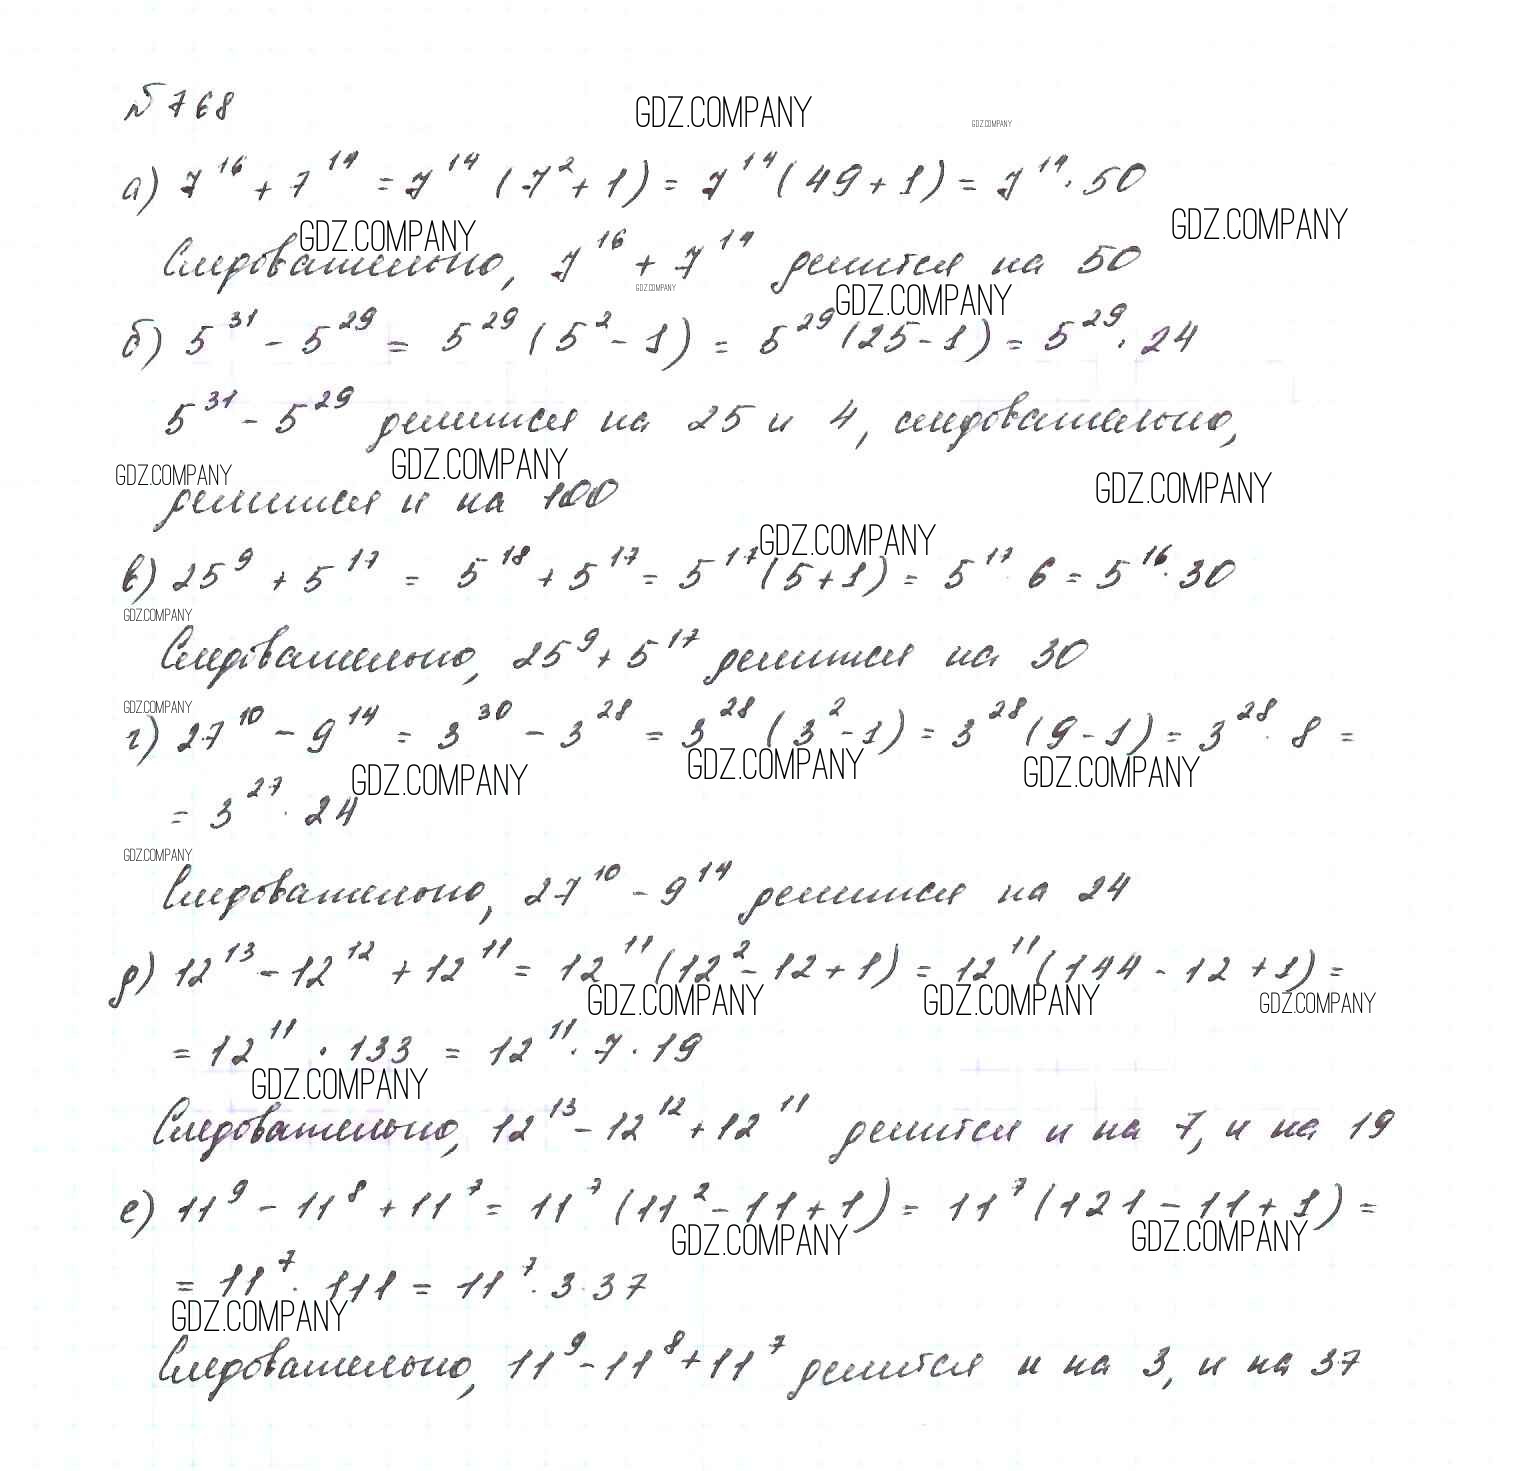 № 768
GDZ.COMPANY
GDZ.COMPANY
а) 7¹⁶ + 7¹⁴ = 7¹⁴ (7² + 1) = 7¹⁴ (49 + 1) = 7¹⁴ · 50
GDZ.COMPANY
GDZ.COMPANY
Следовательно, 7¹⁶ + 7¹⁴ делится на 50
GDZ.COMPANY
GDZ.COMPANY
б) 5³¹ - 5²⁹ = 5²⁹ (5² - 1) = 5²⁹ (25 - 1) = 5²⁹ · 24
5³¹ - 5²⁹ делится на 25 и 4, следовательно,
GDZ.COMPANY
GDZ.COMPANY
GDZ.COMPANY
делится и на 100
GDZ.COMPANY
в) 25⁹ + 5¹⁷ = 5¹⁸ + 5¹⁷ = 5¹⁷ (5 + 1) = 5¹⁷ · 6 = 5¹⁶ · 30
GDZ.COMPANY
Следовательно, 25⁹ + 5¹⁷ делится на 30
GDZ.COMPANY
г) 27¹⁰ - 9¹⁴ = 3³⁰ - 3²⁸ = 3²⁸ (3² - 1) = 3²⁸ (9 - 1) = 3²⁸ · 8 =
GDZ.COMPANY
GDZ.COMPANY
GDZ.COMPANY
= 3²⁷ · 24
GDZ.COMPANY
Следовательно, 27¹⁰ - 9¹⁴ делится на 24
д) 12¹³ - 12¹² + 12¹¹ = 12¹¹ (12² - 12 + 1) = 12¹¹ (144 - 12 + 1) =
GDZ.COMPANY
GDZ.COMPANY
GDZ.COMPANY
= 12¹¹ · 133 = 12¹¹ · 7 · 19
GDZ.COMPANY
Следовательно, 12¹³ - 12¹² + 12¹¹ делится и на 7, и на 19
е) 11⁹ - 11⁸ + 11⁷ = 11⁷ (11² - 11 + 1) = 11⁷ (121 - 11 + 1) =
GDZ.COMPANY
GDZ.COMPANY
= 11⁷ · 111 = 11⁷ · 3 · 37
GDZ.COMPANY
Следовательно, 11⁹ - 11⁸ + 11⁷ делится и на 3, и на 37